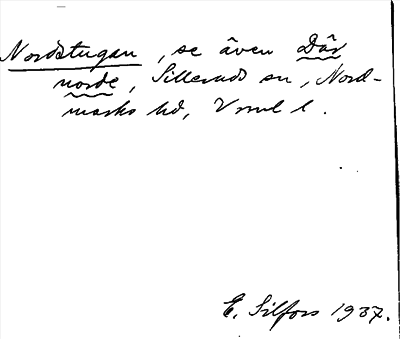 Nordstugan, se även Där
norde, Silleruds sn, Nord-
marks hd, Vrml l.
E. Silfors 1937.